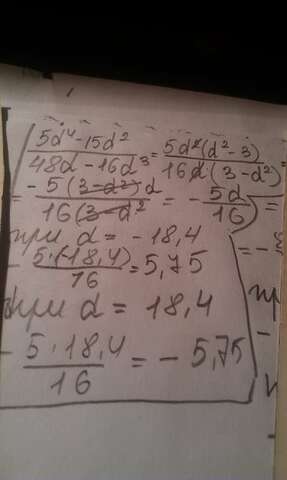 5d⁴ - 15d² / 48d - 16d³ = 5d²(d² - 3) / 16d(3 - d²)
= -5(3 - d²)d / 16(3 - d² = - 5d / 16) =
при d = - 18,4
- 5·(-18,4) / 16 = 5,75
при d = 18,4
- 5·18,4 / 16 = - 5,75